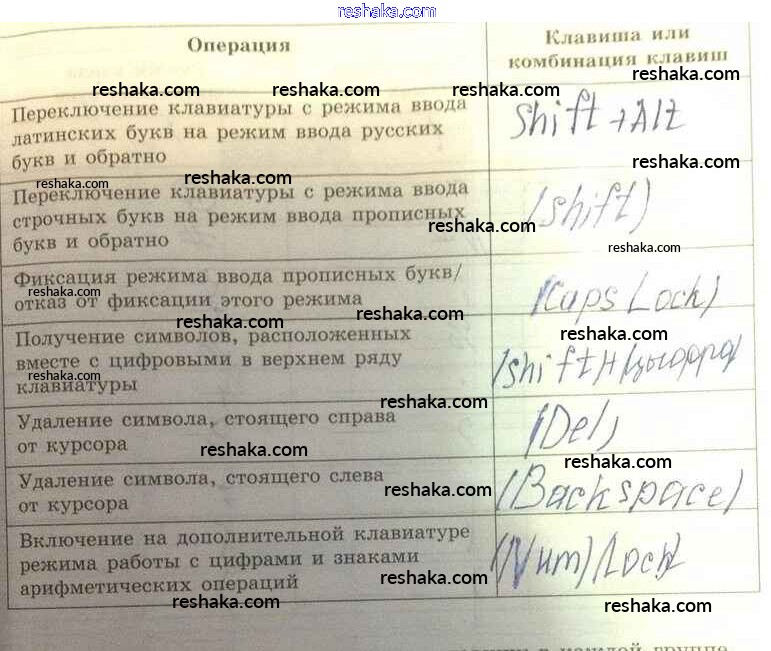 reshaka.com
Операция
Клавиша или
комбинация клавиш
reshaka.com
reshaka.com
reshaka.com
reshaka.com
Переключение клавиатуры с режима ввода
латинских букв на режим ввода русских
букв и обратно
Shift + Alt
reshaka.com
reshaka.com
reshaka.com
Переключение клавиатуры с режима ввода
строчных букв на режим ввода прописных
букв и обратно
(Shift)
reshaka.com
reshaka.com
Фиксация режима ввода прописных букв/
отказ от фиксации этого режима
(Caps Lock)
reshaka.com
reshaka.com
reshaka.com
Получение символов, расположенных
вместе с цифровыми в верхнем ряду
клавиатуры
(shift)+(цыфра)
reshaka.com
reshaka.com
Удаление символа, стоящего справа
от курсора
(Del)
reshaka.com
reshaka.com
Удаление символа, стоящего слева
от курсора
(Backspace)
reshaka.com
Включение на дополнительной клавиатуре
режима работы с цифрами и знаками
арифметических операций
(Num)(Lock)
reshaka.com
reshaka.com
reshaka.com
в каждой группе